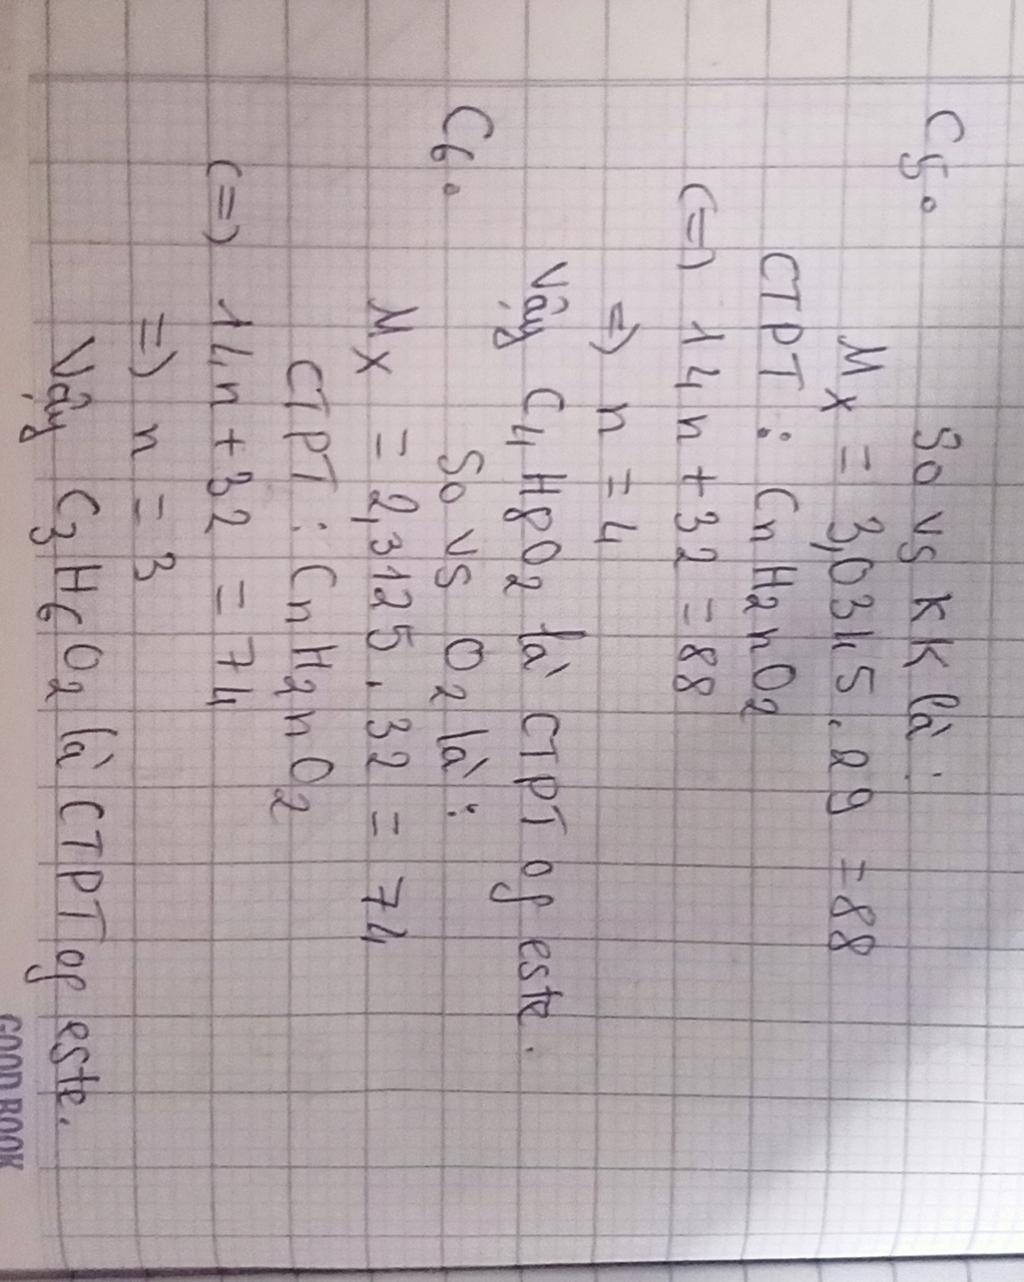 C5.
So vs kk là:
Mx = 3,0345 . 29 = 88
CTPT : CnH2nO2
(=) 14n + 32 = 88
=) n = 4
Vậy C4H8O2 là CTPT of este.
C6.
So vs O2 là:
Mx = 2,3125 . 32 = 74
CTPT : CnH2nO2
(=) 14n + 32 = 74
=) n = 3
Vậy C3H6O2 là CTPT of este.
GOOD BOOK